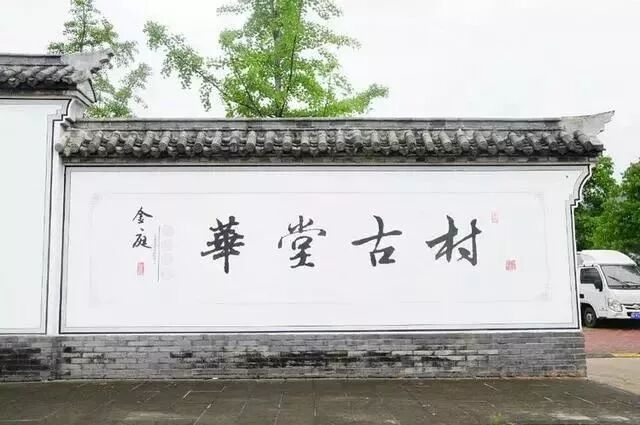 金庭
華堂古村